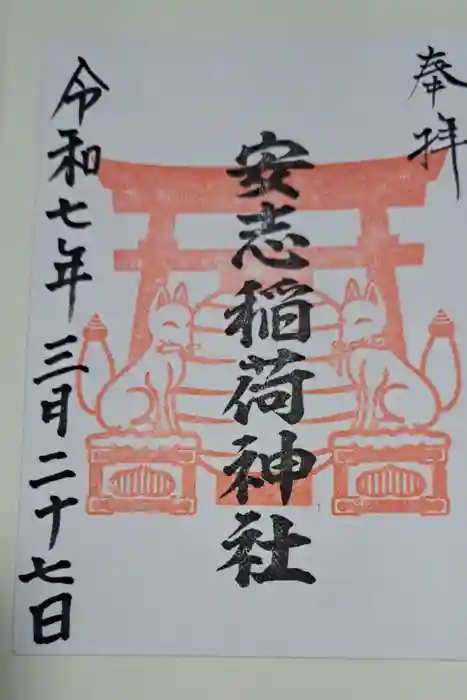 奉拝
安志稲荷神社
令和七年三月二十七日